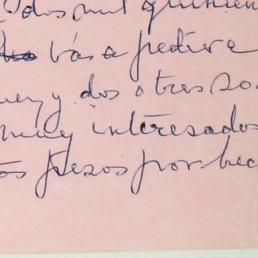 dos mil quinien
vás a pedir e
y dos otres so
muy interesados
os pesos por hec